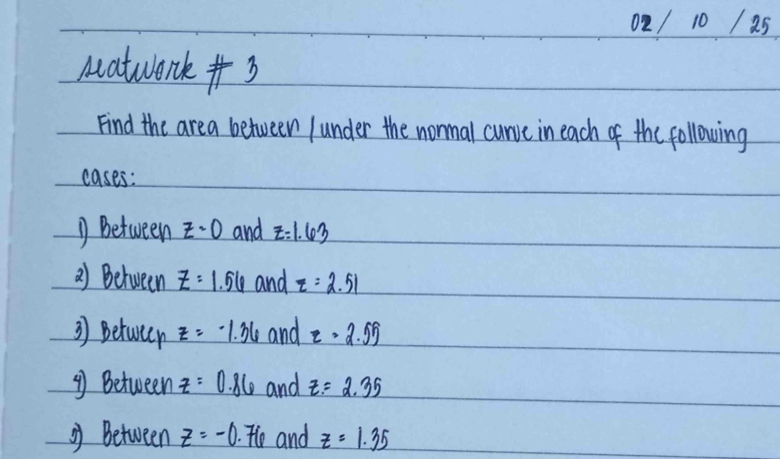 02/ 10 /25
seatwork # 3
Find the area between / under the normal curve in each of the following
cases:
1) Between z=0 and z=1.63
2) Between z = 1.56 and z = 2.51
3) Between z = -1.36 and z = 2.55
4) Between z = 0.86 and z = 2.35
5) Between z = -0.76 and z = 1.35